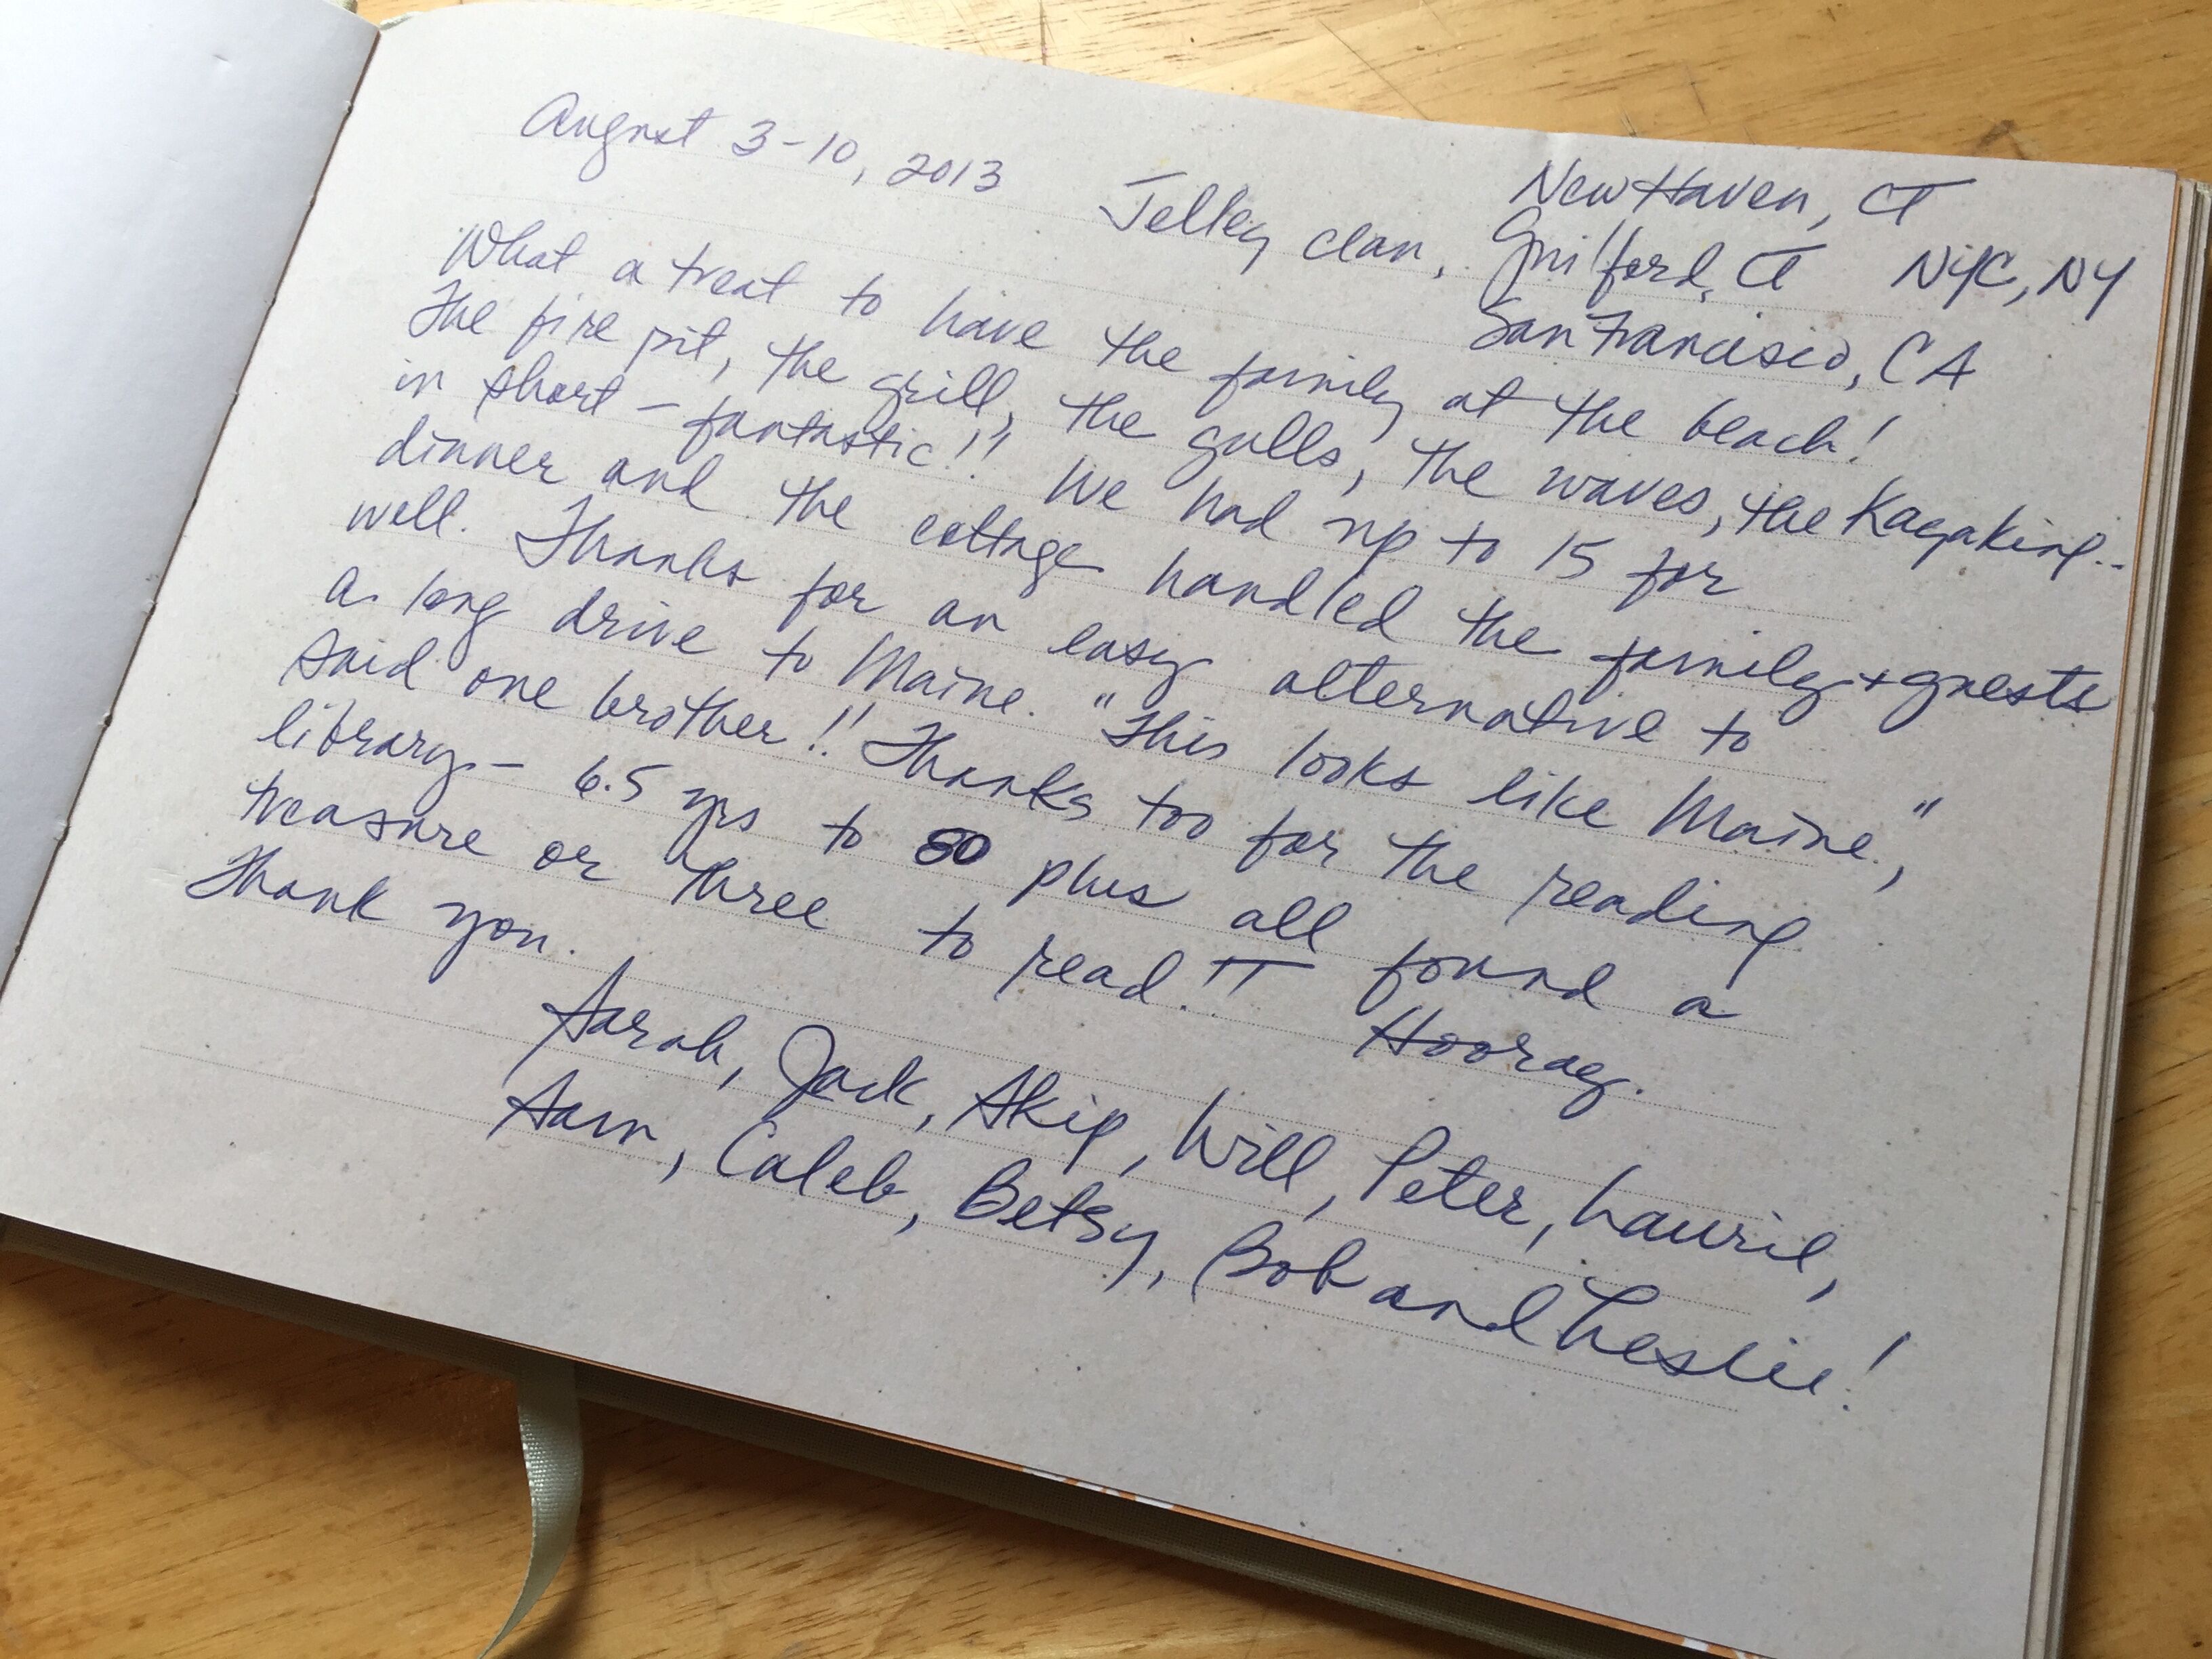 August 3-10, 2013
Jelley clan, New Haven, CT
Guilford, CT NYC, NY
San Francisco, CA
What a treat to have the family at the beach!
The fire pit, the grill, the gulls, the waves, the Kayaking..
in short - fantastic!! We had up to 15 for
dinner and the cottage handled the family + guests
well. Thanks for an easy alternative to
a long drive to Maine. "This looks like Maine,"
said one brother!! Thanks too for the reading
library - 6.5 yrs to 80 plus all found a
treasure or three to read!! Hooray.
Thank you.
Sarah, Jack, Skip, Will, Peter, Laurie,
Sam, Caleb, Betsy, Bob and Leslie!